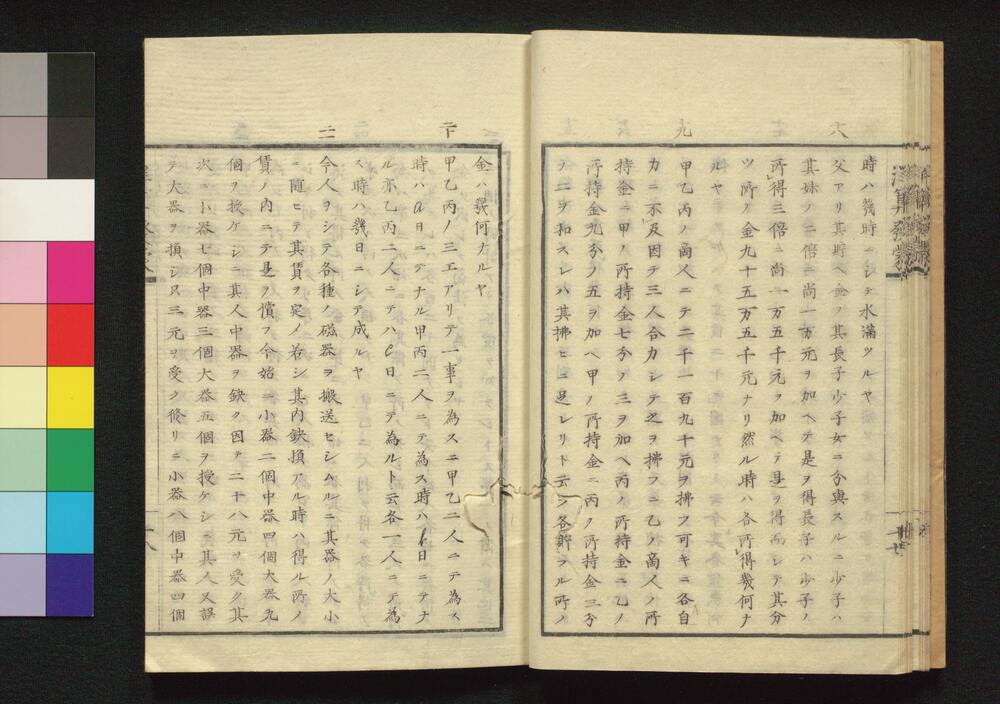 時ハ幾時ニシテ水滿ツルヤ
八
父アリ其貯ヘ金ヲ其長子少子女ニ分與スルニ少子ハ
其妹ノ二倍ニ尚一万元ヲ加ヘテ是ヲ得長子ハ少子ノ
所得三倍ニ尚一万五千元ヲ加ヘテ是ヲ得而シテ其分
ツ所ノ金九十五万五千元ナリ然ル時ハ各所得幾何ナ
ルヤ
九
甲乙丙ノ商人ニテ二千一百九十元ヲ拂フ可キニ各自
カニ不及因テ三人合力シテ之ヲ拂フニ乙ノ商人ノ所
持金ニ甲ノ所持金七分ノ三ヲ加ヘ丙ノ所持金ニ乙ノ
所持金九分ノ五ヲ加ヘ甲ノ所持金ニ丙ノ所持金三分
ノ二ヲ和スレハ其拂ヒニ足レリト云フ各幣フル所ノ
金ハ幾何ナルヤ
二十
甲乙丙ノ三工アリテ一事ヲ為スニ甲乙二人ニテ為ス
時ハa日ニテナル甲丙二人ニテ為ス時ハb日ニテナ
ル亦乙丙二人ニテハc日ニテ為ルト云各一人ニテ為
ス時ハ幾日ニシテ成ルヤ
二一
今人ヲシテ各種ノ磁器ヲ搬送セシムルニ其器ノ大小
ニ隨ヒテ其賃ヲ定メ若シ其内缺損アル時ハ得ル所ノ
賃ノ内ニテ是ヲ償フ今始ニ小器二個中器四個大器九
個ヲ授ケシニ其人中器ヲ缺ク因テ二十八元ヲ受ク其
次ニ小器七個中器三個大器五個ヲ授ケシニ其人又誤
テ大器ヲ損シ只三元ヲ受ク後リニ小器八個中器四個